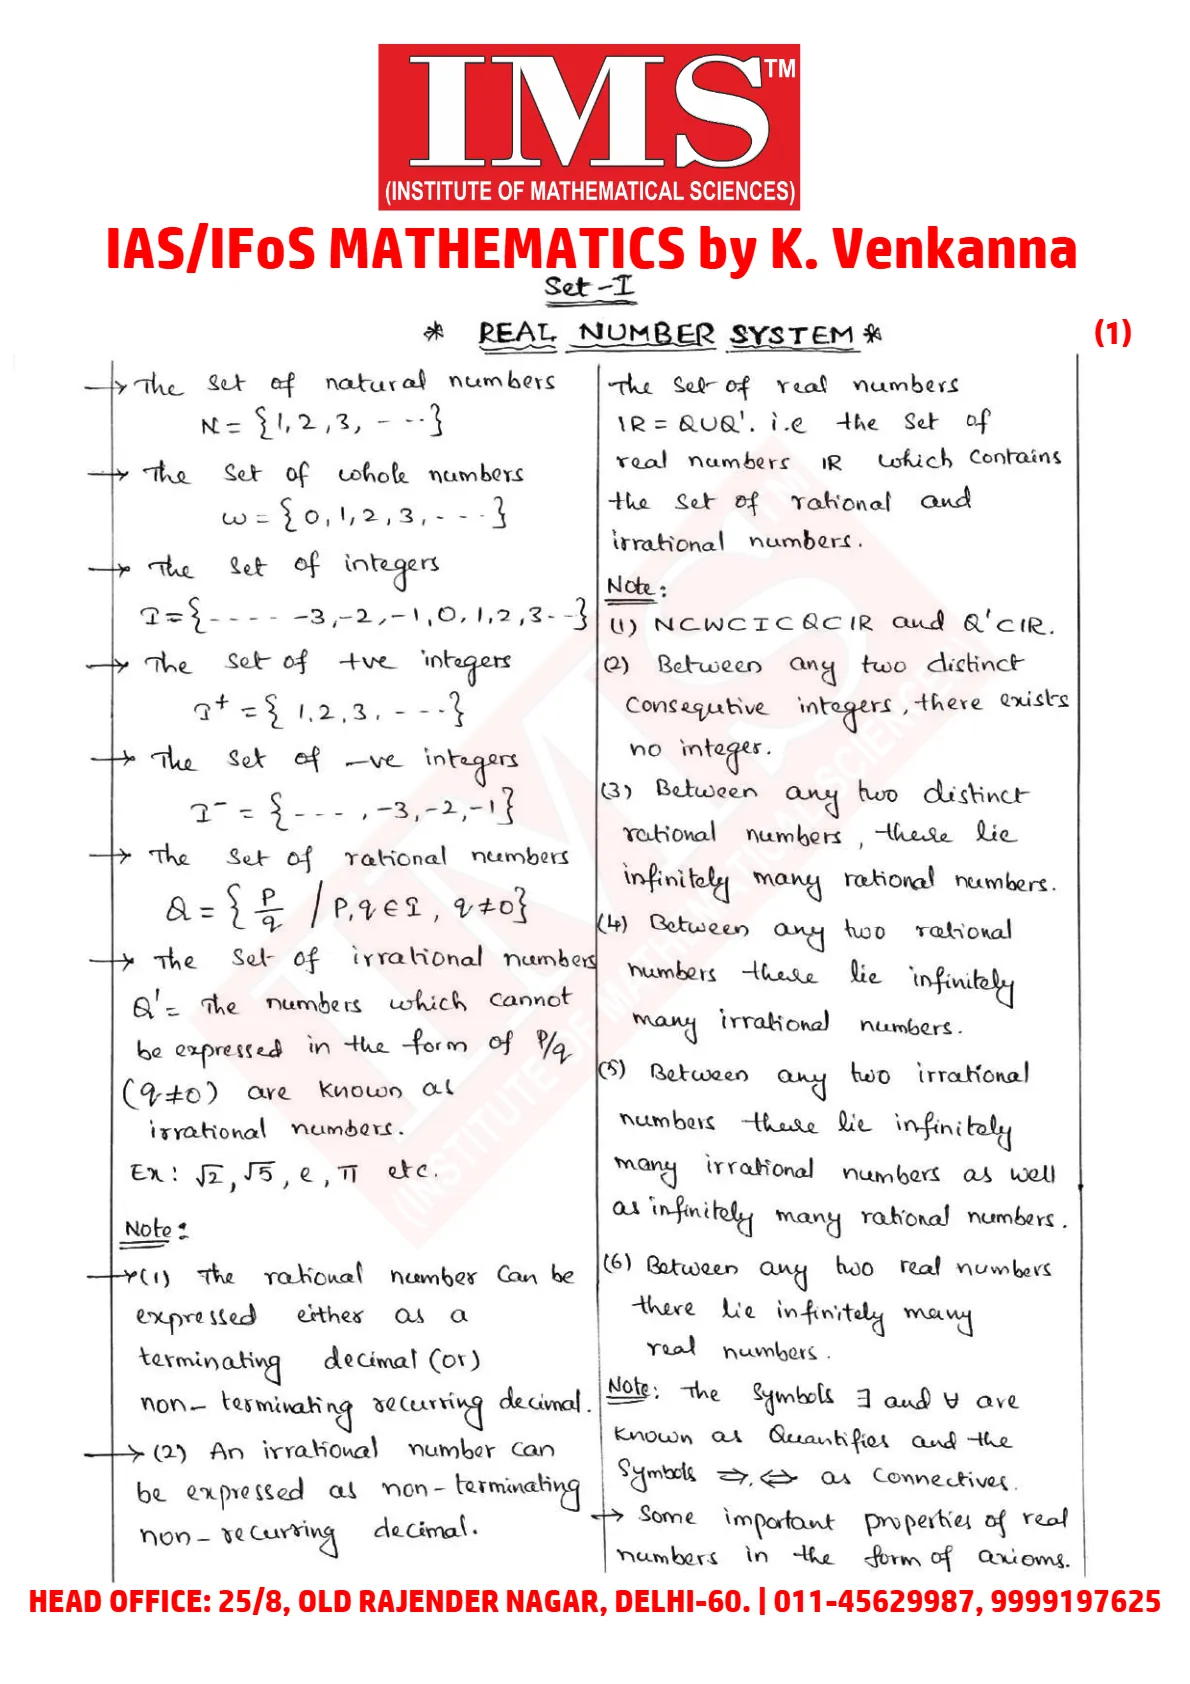 IMS™
(INSTITUTE OF MATHEMATICAL SCIENCES)
IAS/IFoS MATHEMATICS by K. Venkanna
Set-I
* REAL NUMBER SYSTEM *
(1)
→ The set of natural numbers
N = {1, 2, 3, - - -}
→ The set of whole numbers
W = {0, 1, 2, 3, - - -}
→ The set of integers
I = {- - - - -3, -2, -1, 0, 1, 2, 3 - -}
→ The set of +ve integers
I⁺ = {1, 2, 3, - - -}
→ The set of -ve integers
I⁻ = {- - - , -3, -2, -1}
→ The set of rational numbers
Q = {p/q / p, q ∈ I, q ≠ 0}
→ The set of irrational numbers
Q' = The numbers which cannot
be expressed in the form of p/q
(q ≠ 0) are known as
irrational numbers.
Ex: √2, √5, e, π etc.
Note:
→ (1) The rational number can be
expressed either as a
terminating decimal (or)
non-terminating recurring decimal.
→ (2) An irrational number can
be expressed as non-terminating
non-recurring decimal.
The set of real numbers
IR = Q∪Q'. i.e the set of
real numbers IR which contains
the set of rational and
irrational numbers.
Note:
(1) N⊂W⊂I⊂Q⊂IR and Q'⊂IR.
(2) Between any two distinct
consequtive integers, there exists
no integer.
(3) Between any two distinct
rational numbers, there lie
infinitely many rational numbers.
(4) Between any two rational
numbers there lie infinitely
many irrational numbers.
(5) Between any two irrational
numbers there lie infinitely
many irrational numbers as well
as infinitely many rational numbers.
(6) Between any two real numbers
there lie infinitely many
real numbers.
Note: The symbols ∃ and ∀ are
known as Quantifies and the
symbols ⇒, ⇔ as connectives.
→ Some important properties of real
numbers in the form of axioms.
HEAD OFFICE: 25/8, OLD RAJENDER NAGAR, DELHI-60. | 011-45629987, 9999197625